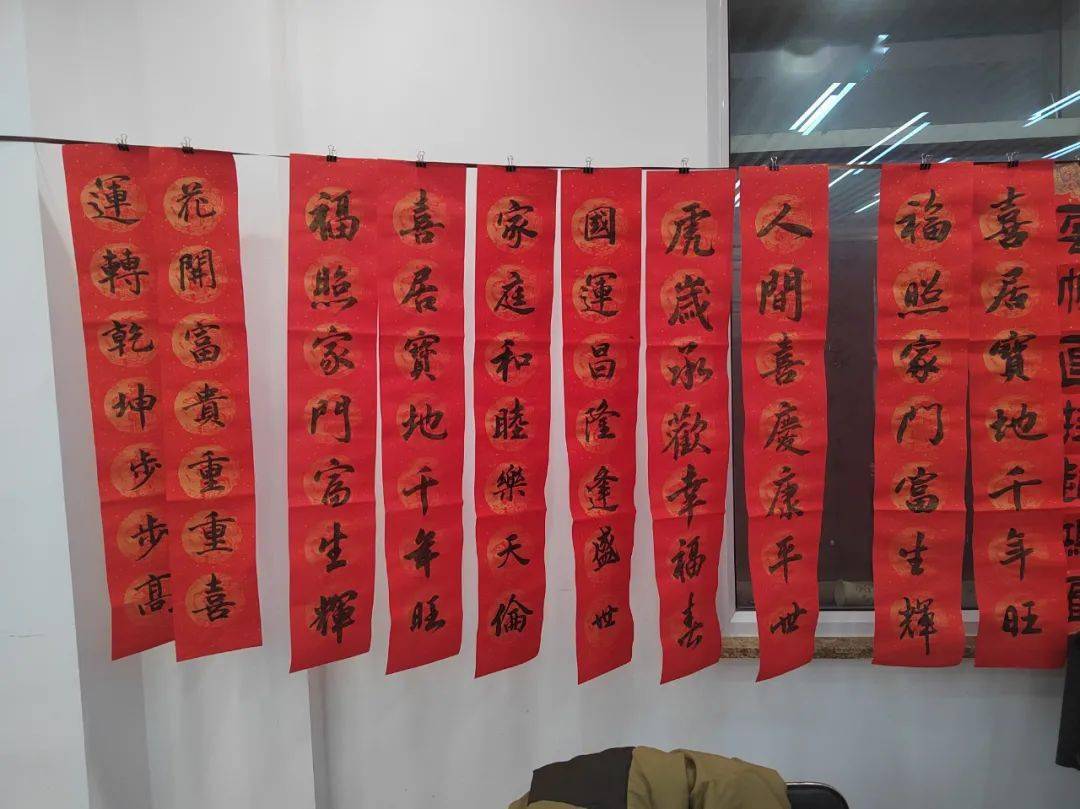 運轉乾坤步步高
花開富貴重重喜
福照家門富生輝
喜居寶地千年旺
家庭和睦樂天倫
國運昌隆逢盛世
虎歲承歡幸福春
人間喜慶康平世
福照家門富生輝
喜居寶地千年旺